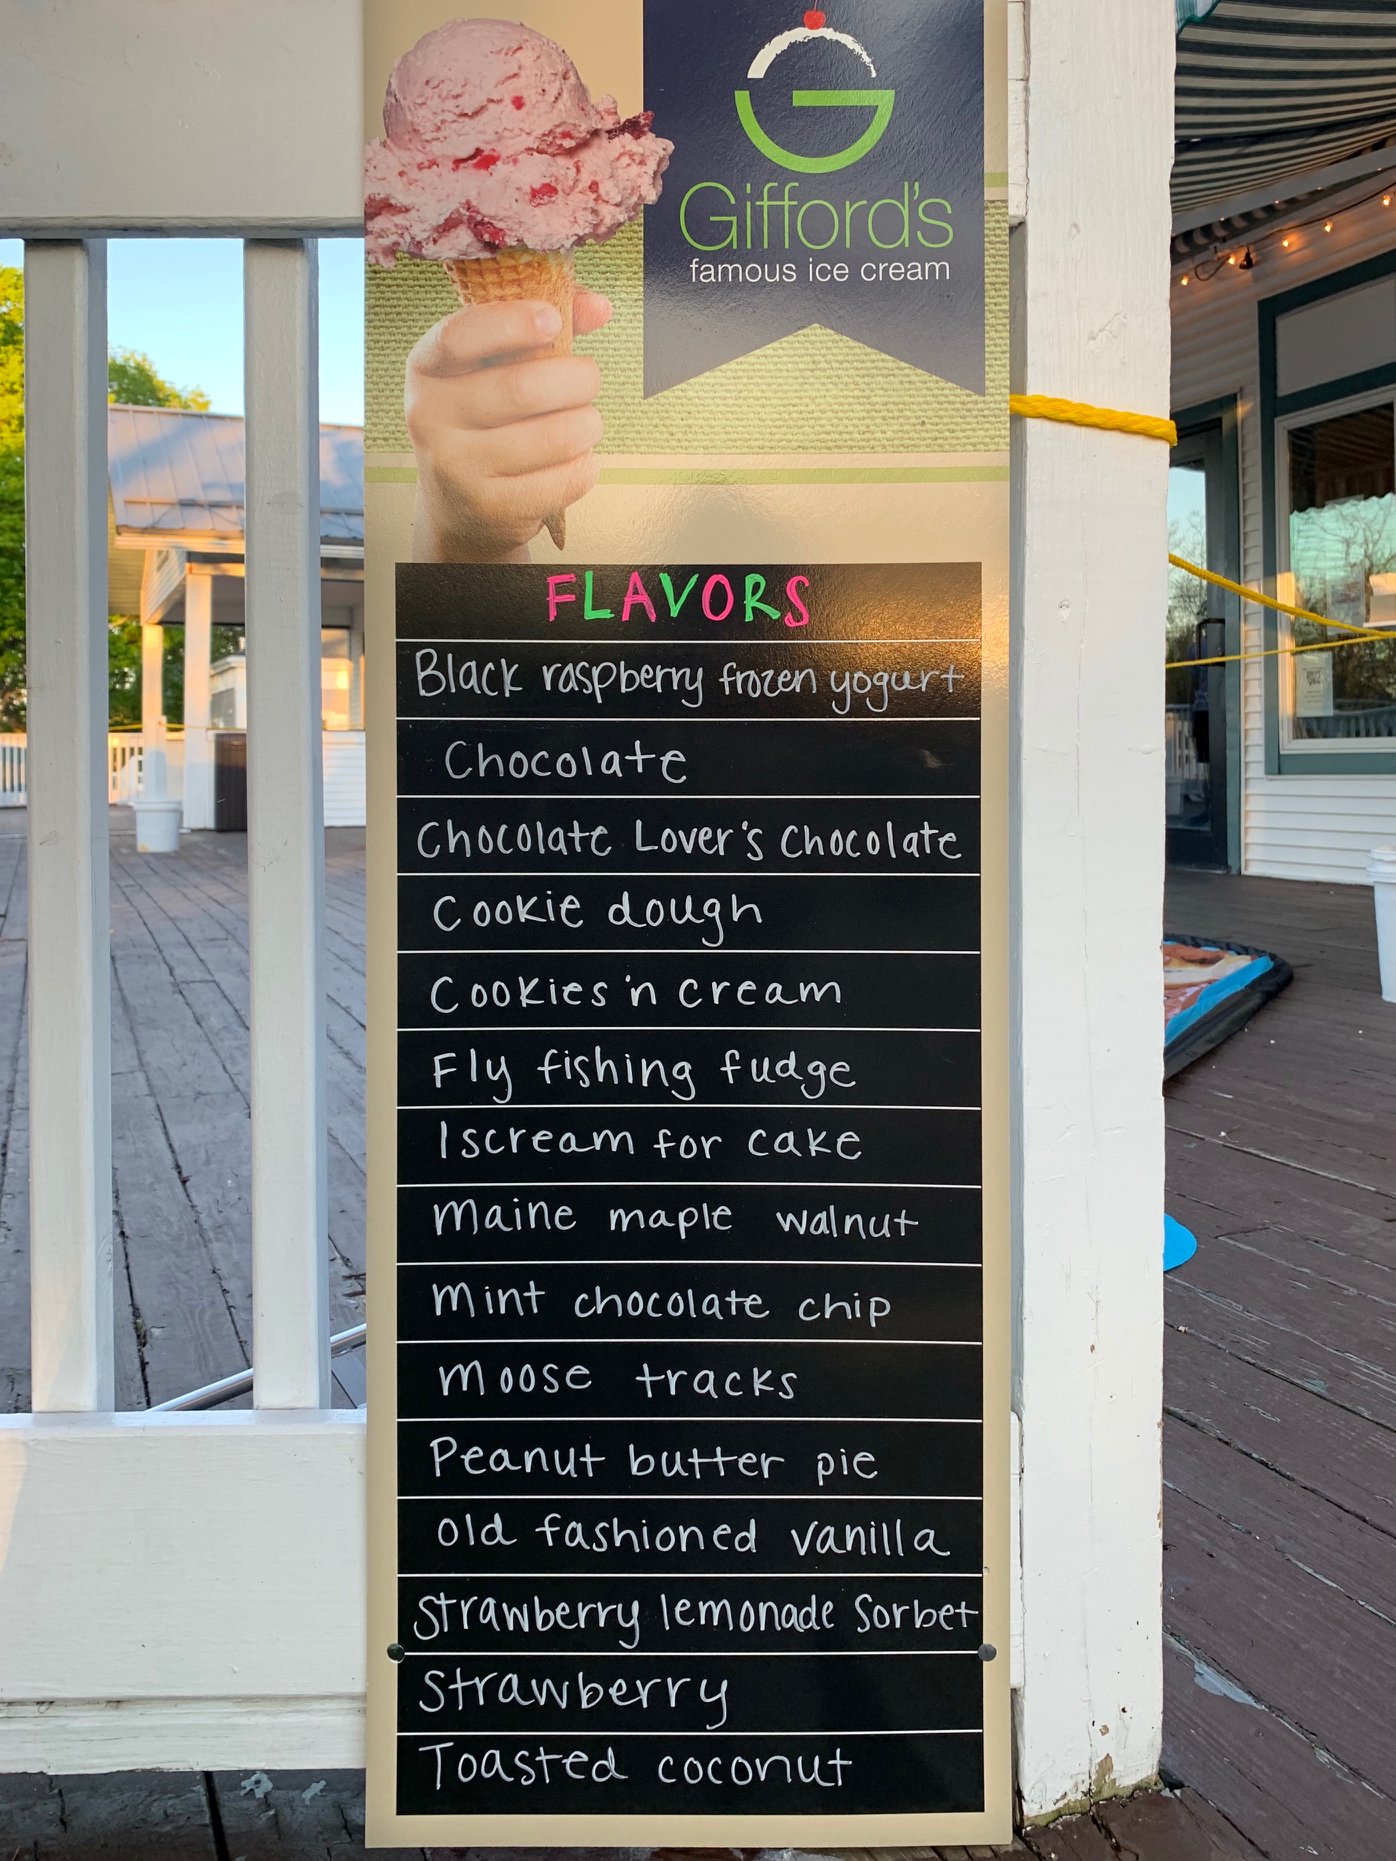 Gifford's
famous ice cream
FLAVORS
Black raspberry frozen yogurt
Chocolate
Chocolate Lover's Chocolate
Cookie dough
Cookies 'n cream
Fly fishing fudge
Iscream for cake
Maine maple walnut
Mint chocolate chip
Moose tracks
Peanut butter pie
Old fashioned vanilla
Strawberry lemonade Sorbet
Strawberry
Toasted coconut